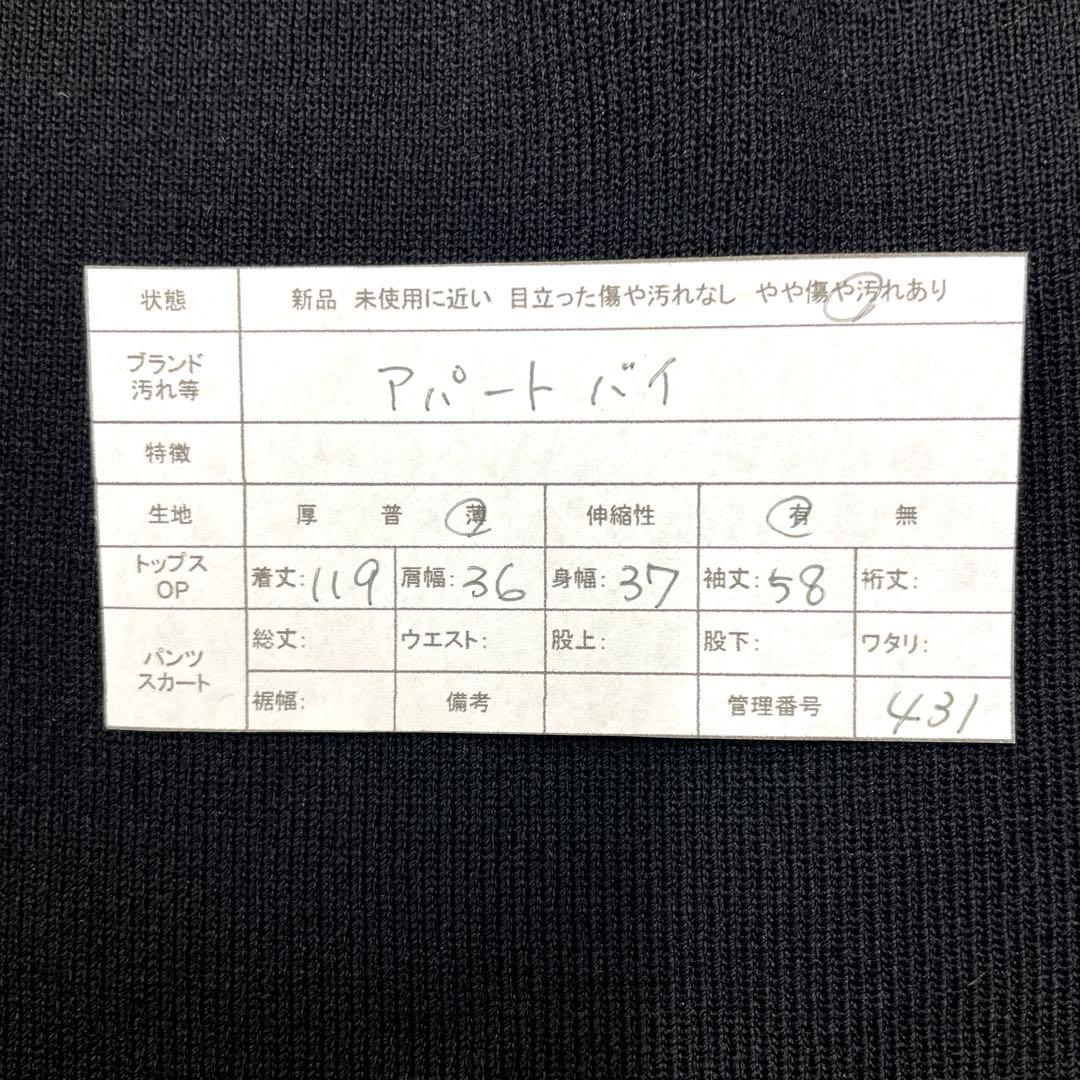 状態 新品 未使用に近い 目立った傷や汚れなし やや傷や汚れあり
ブランド
汚れ等 アパートバイ
特徴
生地 厚 普 薄 伸縮性 有 無
トップス
OP 着丈:119 肩幅:36 身幅:37 袖丈:58 裄丈:
パンツ
スカート 総丈: ウエスト: 股上: 股下: ワタリ:
裾幅: 備考 管理番号 431